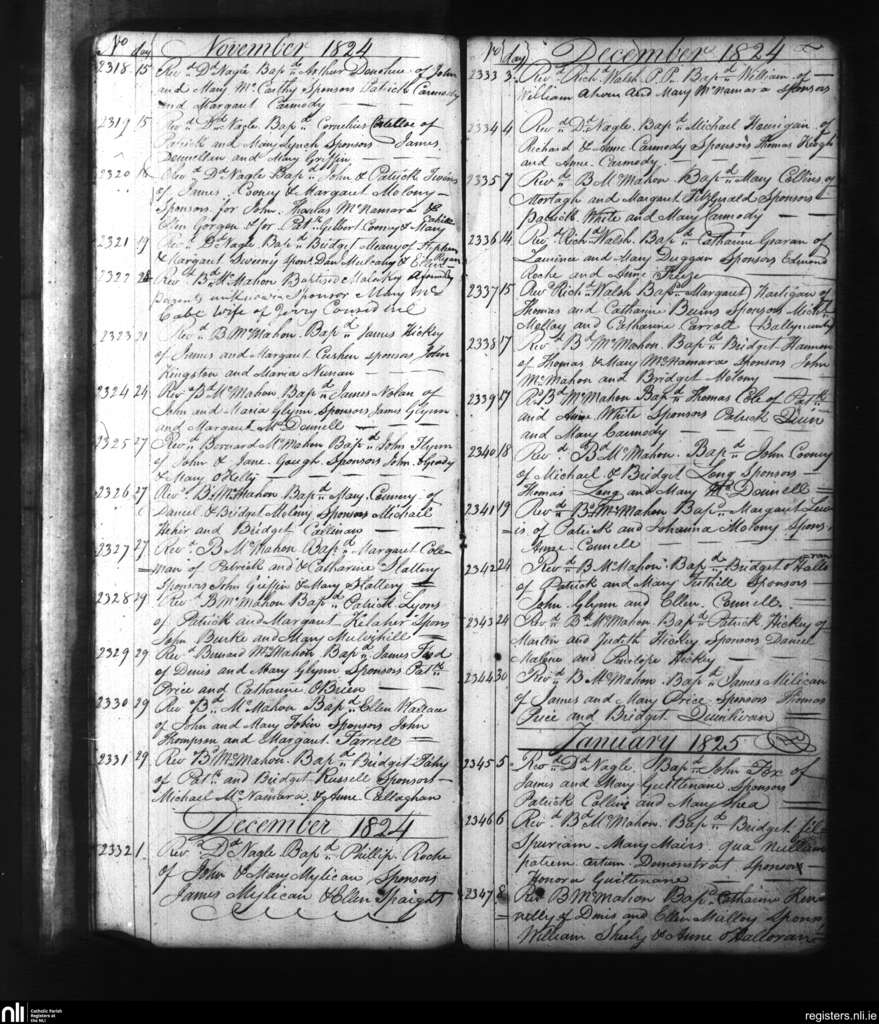 No day November 1824
2318 15 Revd. Dd. Nagle Bapd. Arthur Donohue of John
and Mary McCarthy Sponsors Patrick Carmody
and Margaret Carmody
2319 15 Revd. Dd. Nagle Bapd. Cornelius of
Patrick and Mary Lynch Sponsors James
and Mary Griffin
2320 18 Revd. Dd. Nagle Bapd. John & Patrick Twins
of James Cooney & Margaret Molony
Sponsors for John, Thomas McNamara &
Ellen Gorgan & for Patk. Gilbert Cooney & Mary
2321 19 Revd. Dd. Nagle Bapd. Bridget Meany of Stephen
& Margaret Sweeny Spons. Dan Mulcahy & Ryan
2322 Revd. Bd. McMahon Baptised
parents unknown Sponsor Mary Mc
Cabe Wife of
2323 21 Revd. B. McMahon Bapd. James Hickey
of James and Margaret Cushen Sponsors John
Kingston and Maria
2324 24 Revd. Bd. McMahon Bapd. James Nolan of
John and Maria Glynn Sponsors James Glynn
and Margaret McDonnell
2325 27 Revd. Bernard McMahon Bapd. John Flynn
of John & Jane Gough Sponsors John OGrady
& Mary OKelly
2326 27 Revd. B. McMahon Bapd. Mary Connery of
Daniel & Bridget Molony Sponsors Michael
Hehir and Bridget Callinan
2327 27 Revd. B. McMahon Bapd. Margaret Cole=
man of Patrick and Catharine Slattery
Sponsors John Griffin & Mary Slattery
2328 29 Revd. B. McMahon Bapd. Patrick Lyons
of Patrick and Margaret Kelaher Spons
John Burke and Mary Mulvihill
2329 29 Revd. Bernard McMahon Bapd. James
of Denis and Mary Glynn Sponsors Patk.
Price and Catharine OBrien
2330 29 Revd. Bd. McMahon Bapd. Ellen Wallace
of John and Mary Tobin Sponsors John
Thompson and Margaret Farrell
2331 29 Revd. Bd. McMahon Bapd. Bridget Fahy
of Patk. and Bridget Russell Sponsors
Michael McNamara & Anne Callaghan
December 1824
2332 1 Revd. Dd. Nagle Bapd. Phillip Roche
of John & Mary Mylican Sponsors
James Mylican & Ellen Spaight
No day December 1824
2333 3 Revd. Richd. Walsh P.P. Bapd. William of
William Ahern and Mary McNamara Sponsors
2334 4 Revd. Dd. Nagle Bapd. Michael Hourigan of
Richard & Anne Carmody Sponsors Thomas Keogh
and Anne Carmody
2335 7 Revd. B. McMahon Bapd. Mary Collins of
Mortagh and Margaret Fitzgerald Sponsors
Patrick White and Mary Carmody
2336 14 Revd. Richd. Walsh Bapd. Catharine of
Laurence and Mary Duggan Sponsors Edmond
Roche and Anne
2337 15 Revd. Richd. Walsh Bapd. Margaret Hartigan of
Thomas and Catharine Sponsors Michl.
Molloy and Catharine Carroll
2338 17 Revd. Bd. McMahon Bapd. Bridget Hannon
of Thomas & Mary McNamara Sponsors John
McMahon and Bridget Molony
2339 17 Revd. Bd. McMahon Bapd. Thomas Cole of Patk.
and Anne White Sponsors Patrick Quin
and Mary Carmody
2340 18 Revd. B. McMahon Bapd. John Cooney
of Michael & Bridget Long Sponsors
Thomas Long and Mary McDonnell
2341 19 Revd. Bd. McMahon Bapd. Margaret Lew=
is of Patrick and Johanna Molony Spons.
Anne Connell
2342 24 Revd. B. McMahon Bapd. Bridget OHalloran
of Patrick and Mary Tuthill Sponsors
John Glynn and Ellen Connell
2343 24 Revd. Bd. McMahon Bapd. Patrick Hickey of
Martin and Judith Hickey Sponsors Daniel
Malone and Penelope Hickey
2344 30 Revd. B. McMahon Bapd. James Milican
of James and Mary Price Sponsors Thomas
Price and Bridget Dunlivan
January 1825
2345 5 Revd. Dd. Nagle Bapd. John Fox of
James and Mary Guiltenane Sponsors
Patrick Collins and Mary Shea
2346 6 Revd. Bd. McMahon Bapd. Bridget fil=
Spuriam Mary Mairs qua nullum
patrem Demonstrat Sponsor
Honora Guiltenane
2347 8 Revd. B. McMahon Bapd. Catharine Hen=
nelly of Denis and Ellen Malloy Spons
William Sheely & Anne OHalloran
nli Catholic Parish
Registers at
the NLI
registers.nli.ie